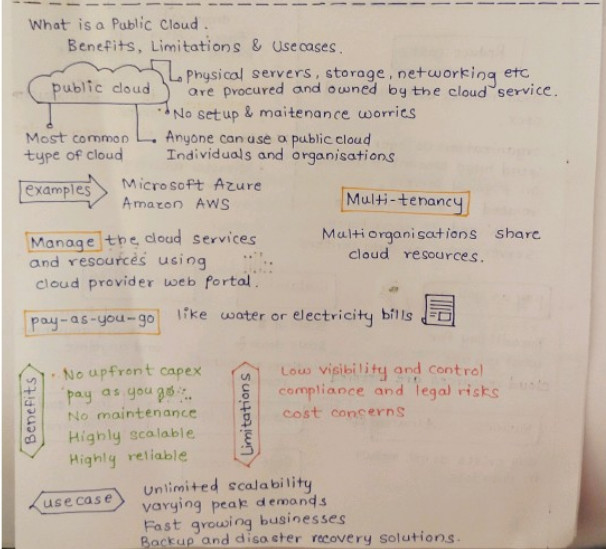 What is a Public Cloud.
Benefits, Limitations & Usecases.
public cloud
Physical servers, storage, networking etc
are procured and owned by the cloud service.
No setup & maitenance worries
Most common
type of cloud
Anyone can use a public cloud
Individuals and organisations
examples
Microsoft Azure
Amazon AWS
Multi-tenancy
Multiorganisations share
cloud resources.
Manage the cloud services
and resources using
cloud provider web portal.
pay-as-you-go like water or electricity bills
Benefits
No upfront capex
pay as you go
No maintenance
Highly scalable
Highly reliable
Limitations
Low visibility and control
compliance and legal risks
cost concerns
use case
Unlimited scalability
varying peak demands
Fast growing businesses
Backup and disaster recovery solutions.